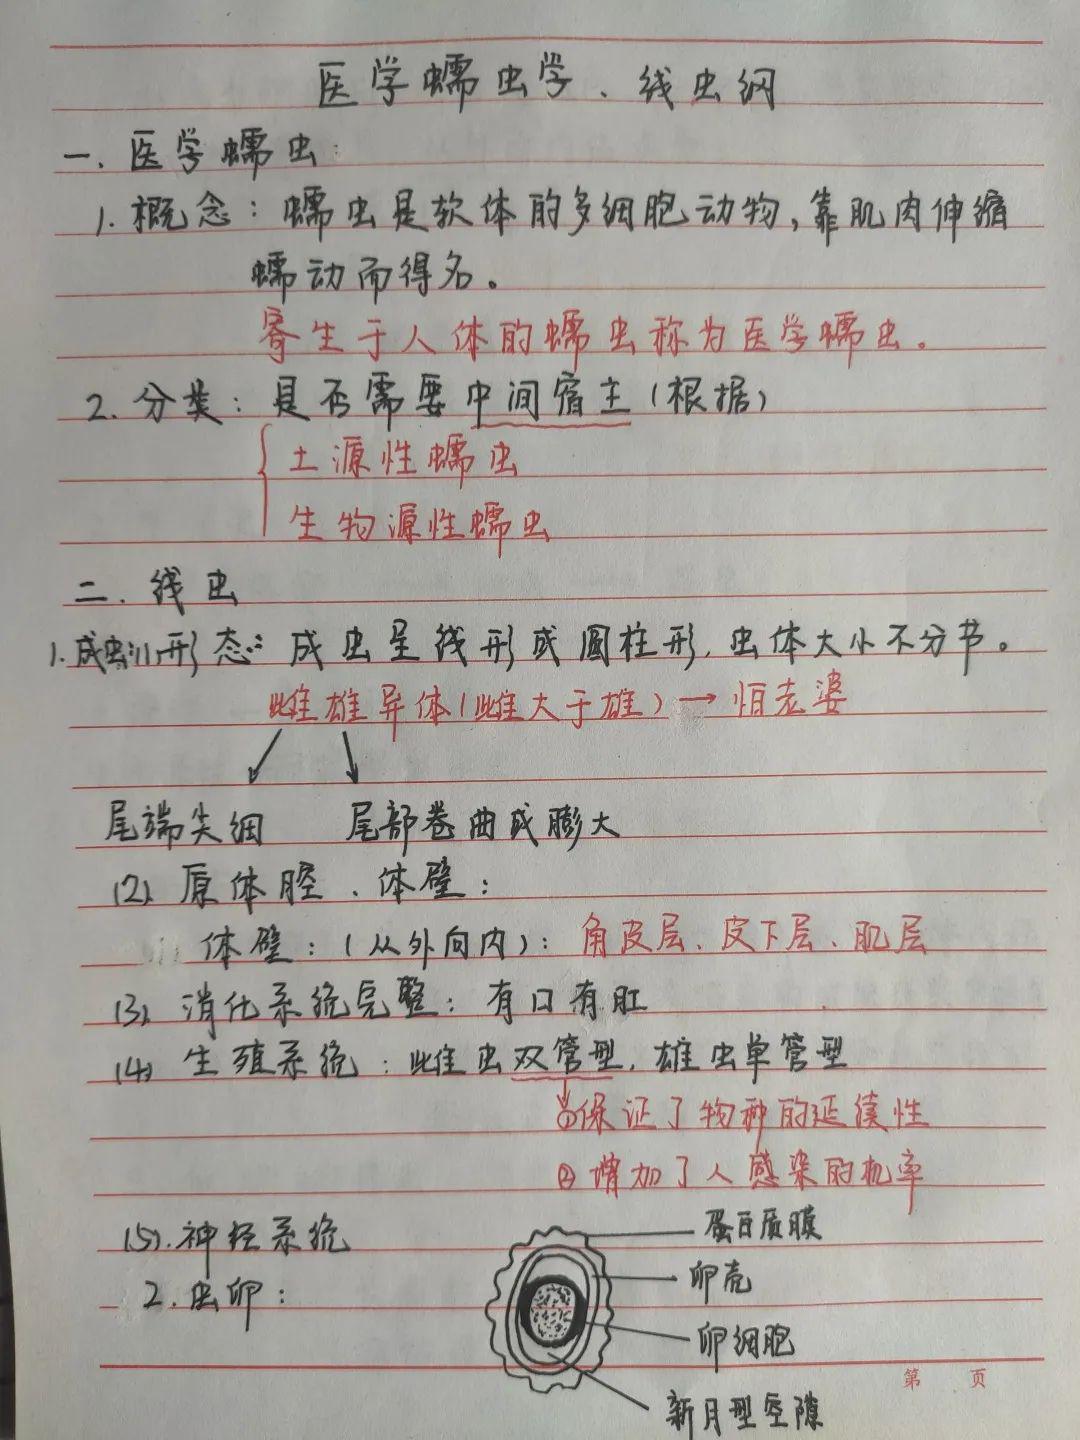 医学蠕虫学、线虫纲
一、医学蠕虫：
1. 概念：蠕虫是软体的多细胞动物，靠肌肉伸缩
蠕动而得名。
寄生于人体的蠕虫称为医学蠕虫。
2. 分类：是否需要中间宿主（根据）
土源性蠕虫
生物源性蠕虫
二、线虫
1. 成虫：(1) 形态：成虫呈线形或圆柱形，虫体大小不分节。
雌雄异体（雌大于雄）→ 怕老婆
尾端尖细 尾部卷曲或膨大
(2) 原体腔、体壁：
体壁：（从外向内）：角皮层、皮下层、肌层
(3) 消化系统完整：有口有肛
(4) 生殖系统：雌虫双管型，雄虫单管型
①保证了物种的延续性
②增加了人感染的机率
(5). 神经系统
2. 虫卵：
蛋白质膜
卵壳
卵细胞
新月型空隙
第 页